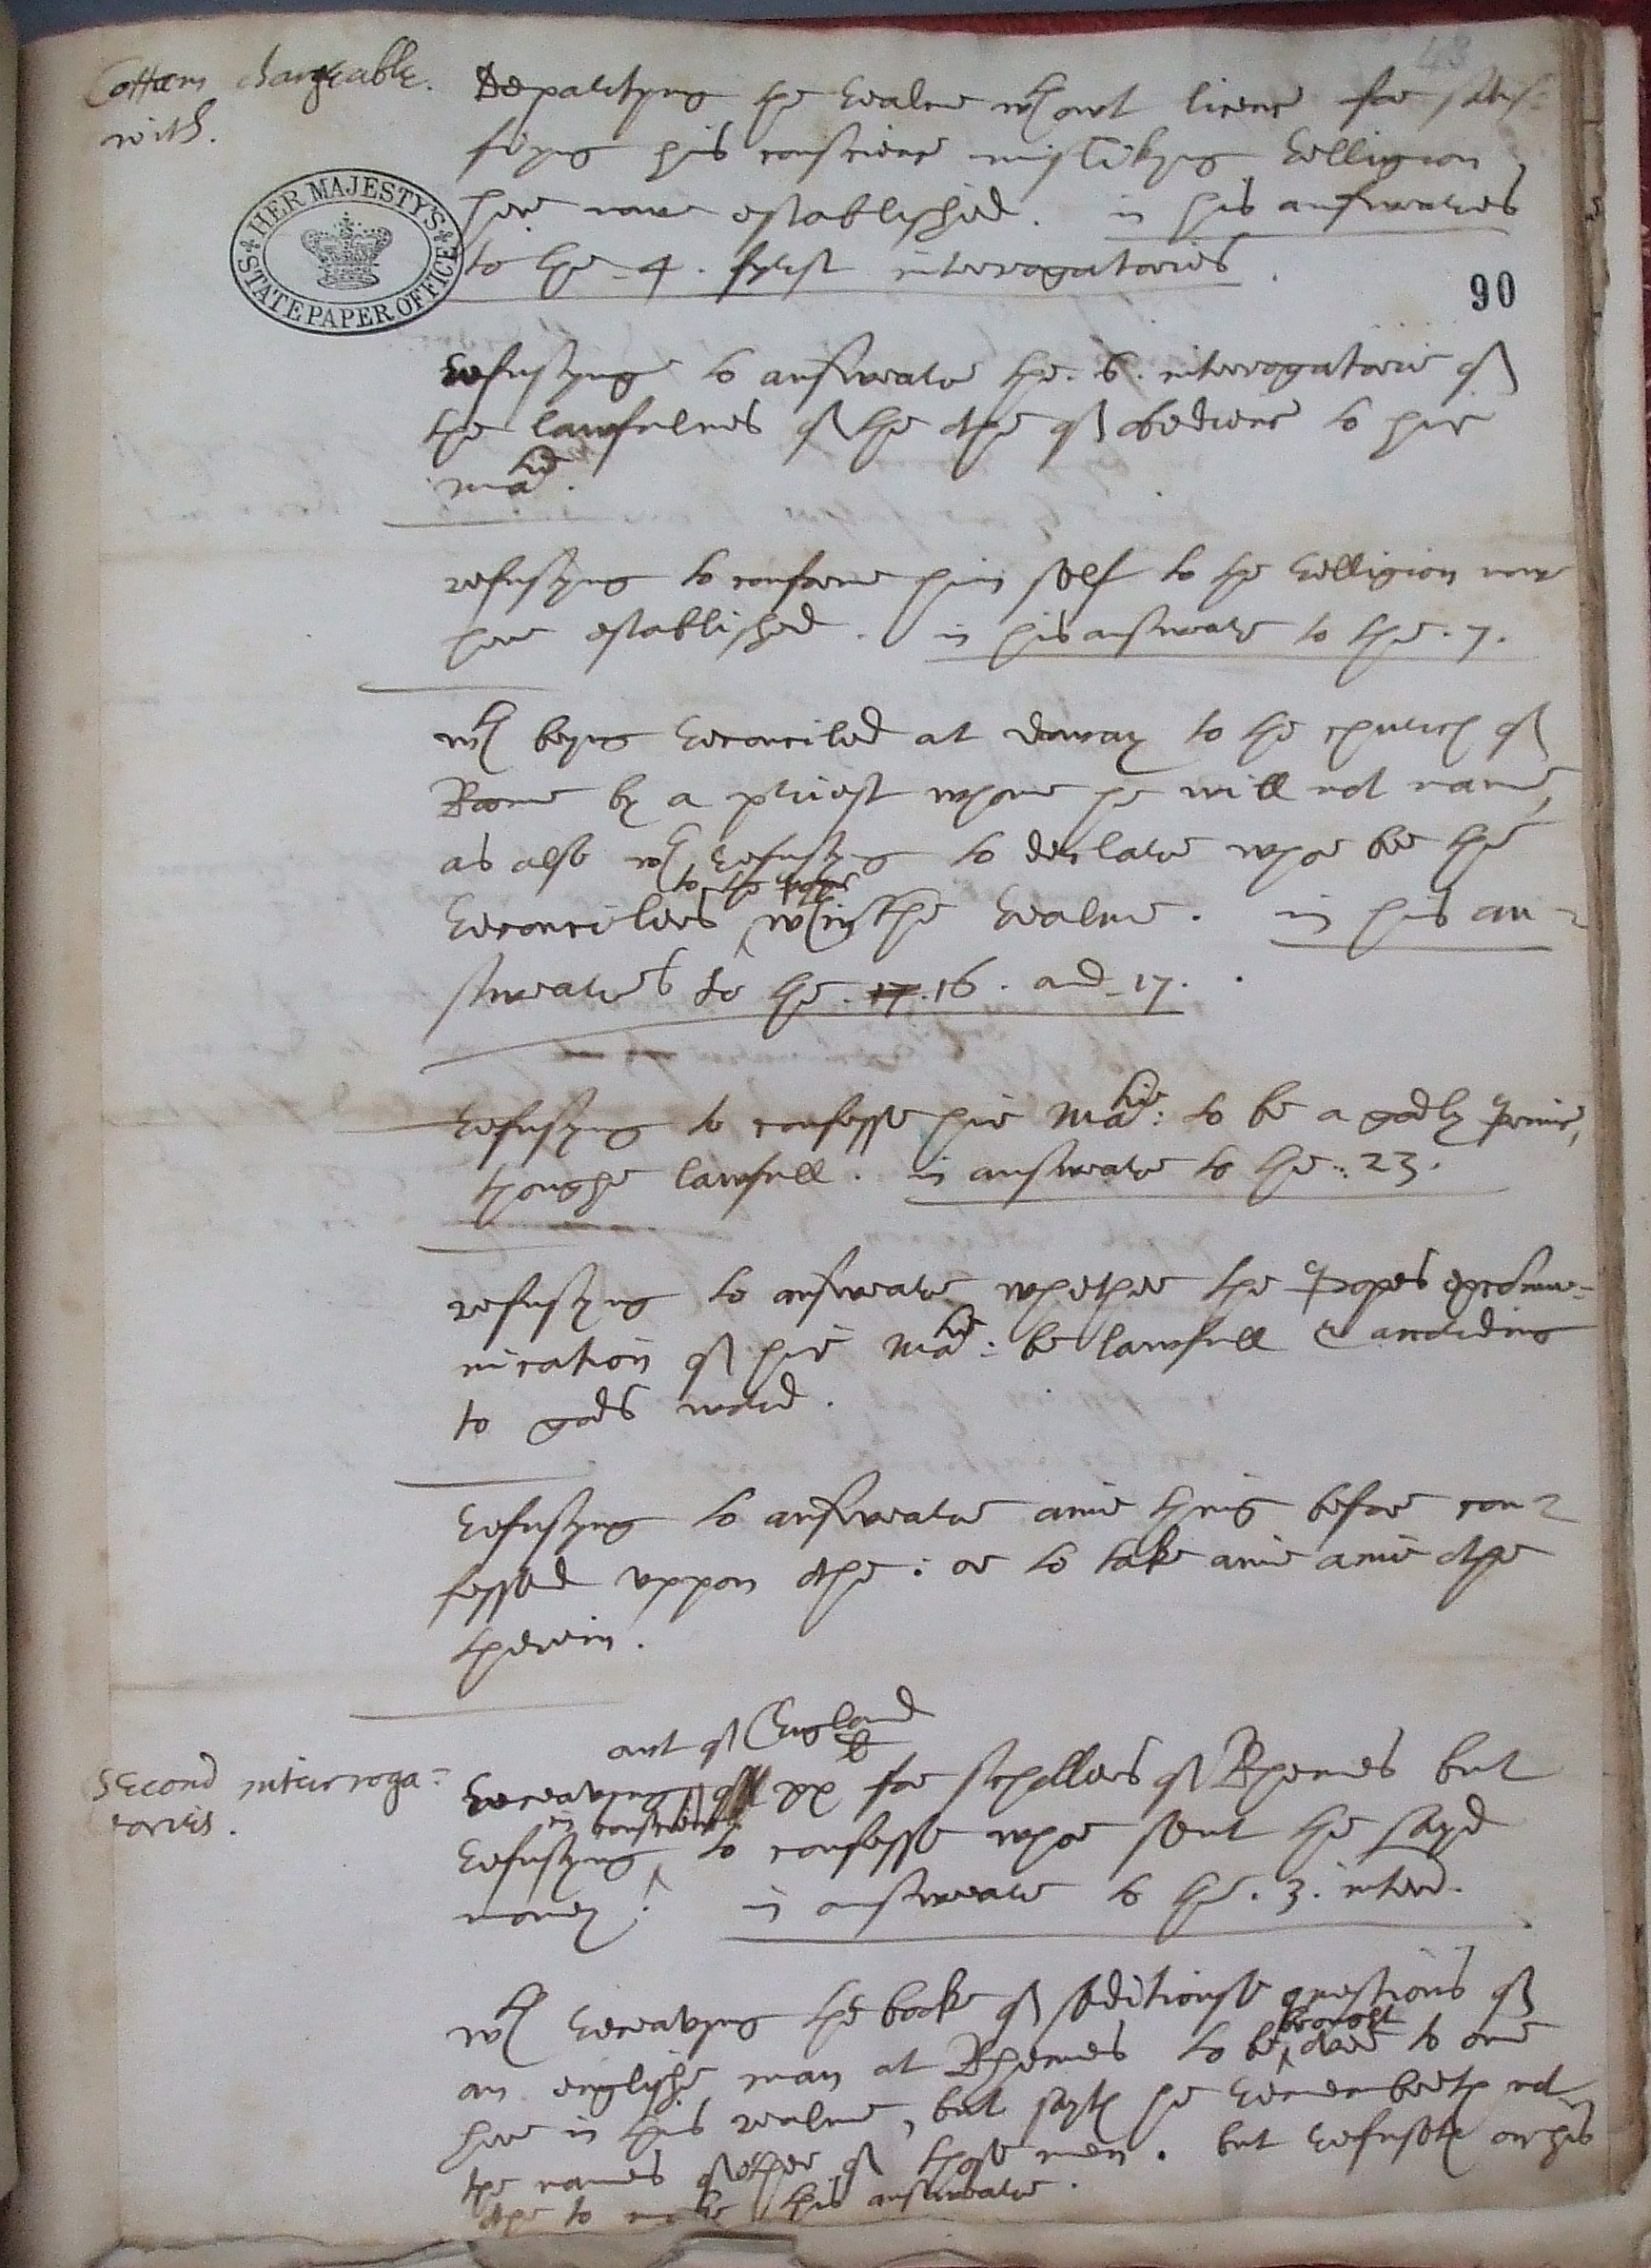 48
Cottam chargeable
with.
HER MAJESTY'S
STATE PAPER OFFICE
90
Departyng the Realme wthowt licence for satis=
fieng his conscience mislikyng Relligion
here now established. in his answeares
to the .4. fyrst interrogatories.
Refusyng to answeare the .6. interrogatorie of
the lawfulnes of the othe of obedience to hir
Matie.
refusyng to conforme him self to the Relligion now
here established. in his answeare to the .7.
wth beyng Reconciled at Doway to the church of
Roome by a priest whome he will not name,
as also wth Refusyng to declare who be the
to the pope
Reconcilers wthin the Realme. in his an=
sweares to the .17. 16. and 17.
Refusyng to confesse hir Matie: to be a godly prince,
thoughe lawfull. in answeare to the: 23.
refusyng to answeare whether the popes excomu=
nication of hir Matie: be lawfull & accordinge
to gods word.
Refusyng to answeare anie thing before con=
fessed uppon othe: or to take anie anie othe
therein.
Second interroga=
tories.
out of England
Receavyng of xx li for schollers of Rhemes but
in conscience
Refusyng to confesse who sent the sayd
money: in answeare to the .3. interr.
wth Receavyng the booke of seditiouse questions of
brought
an englishe man at Rhemes to be over to one
here in this realme, but sayth he Remembreth not
the names of ether of those men. but Refuseth on his
othe to make this answeare.